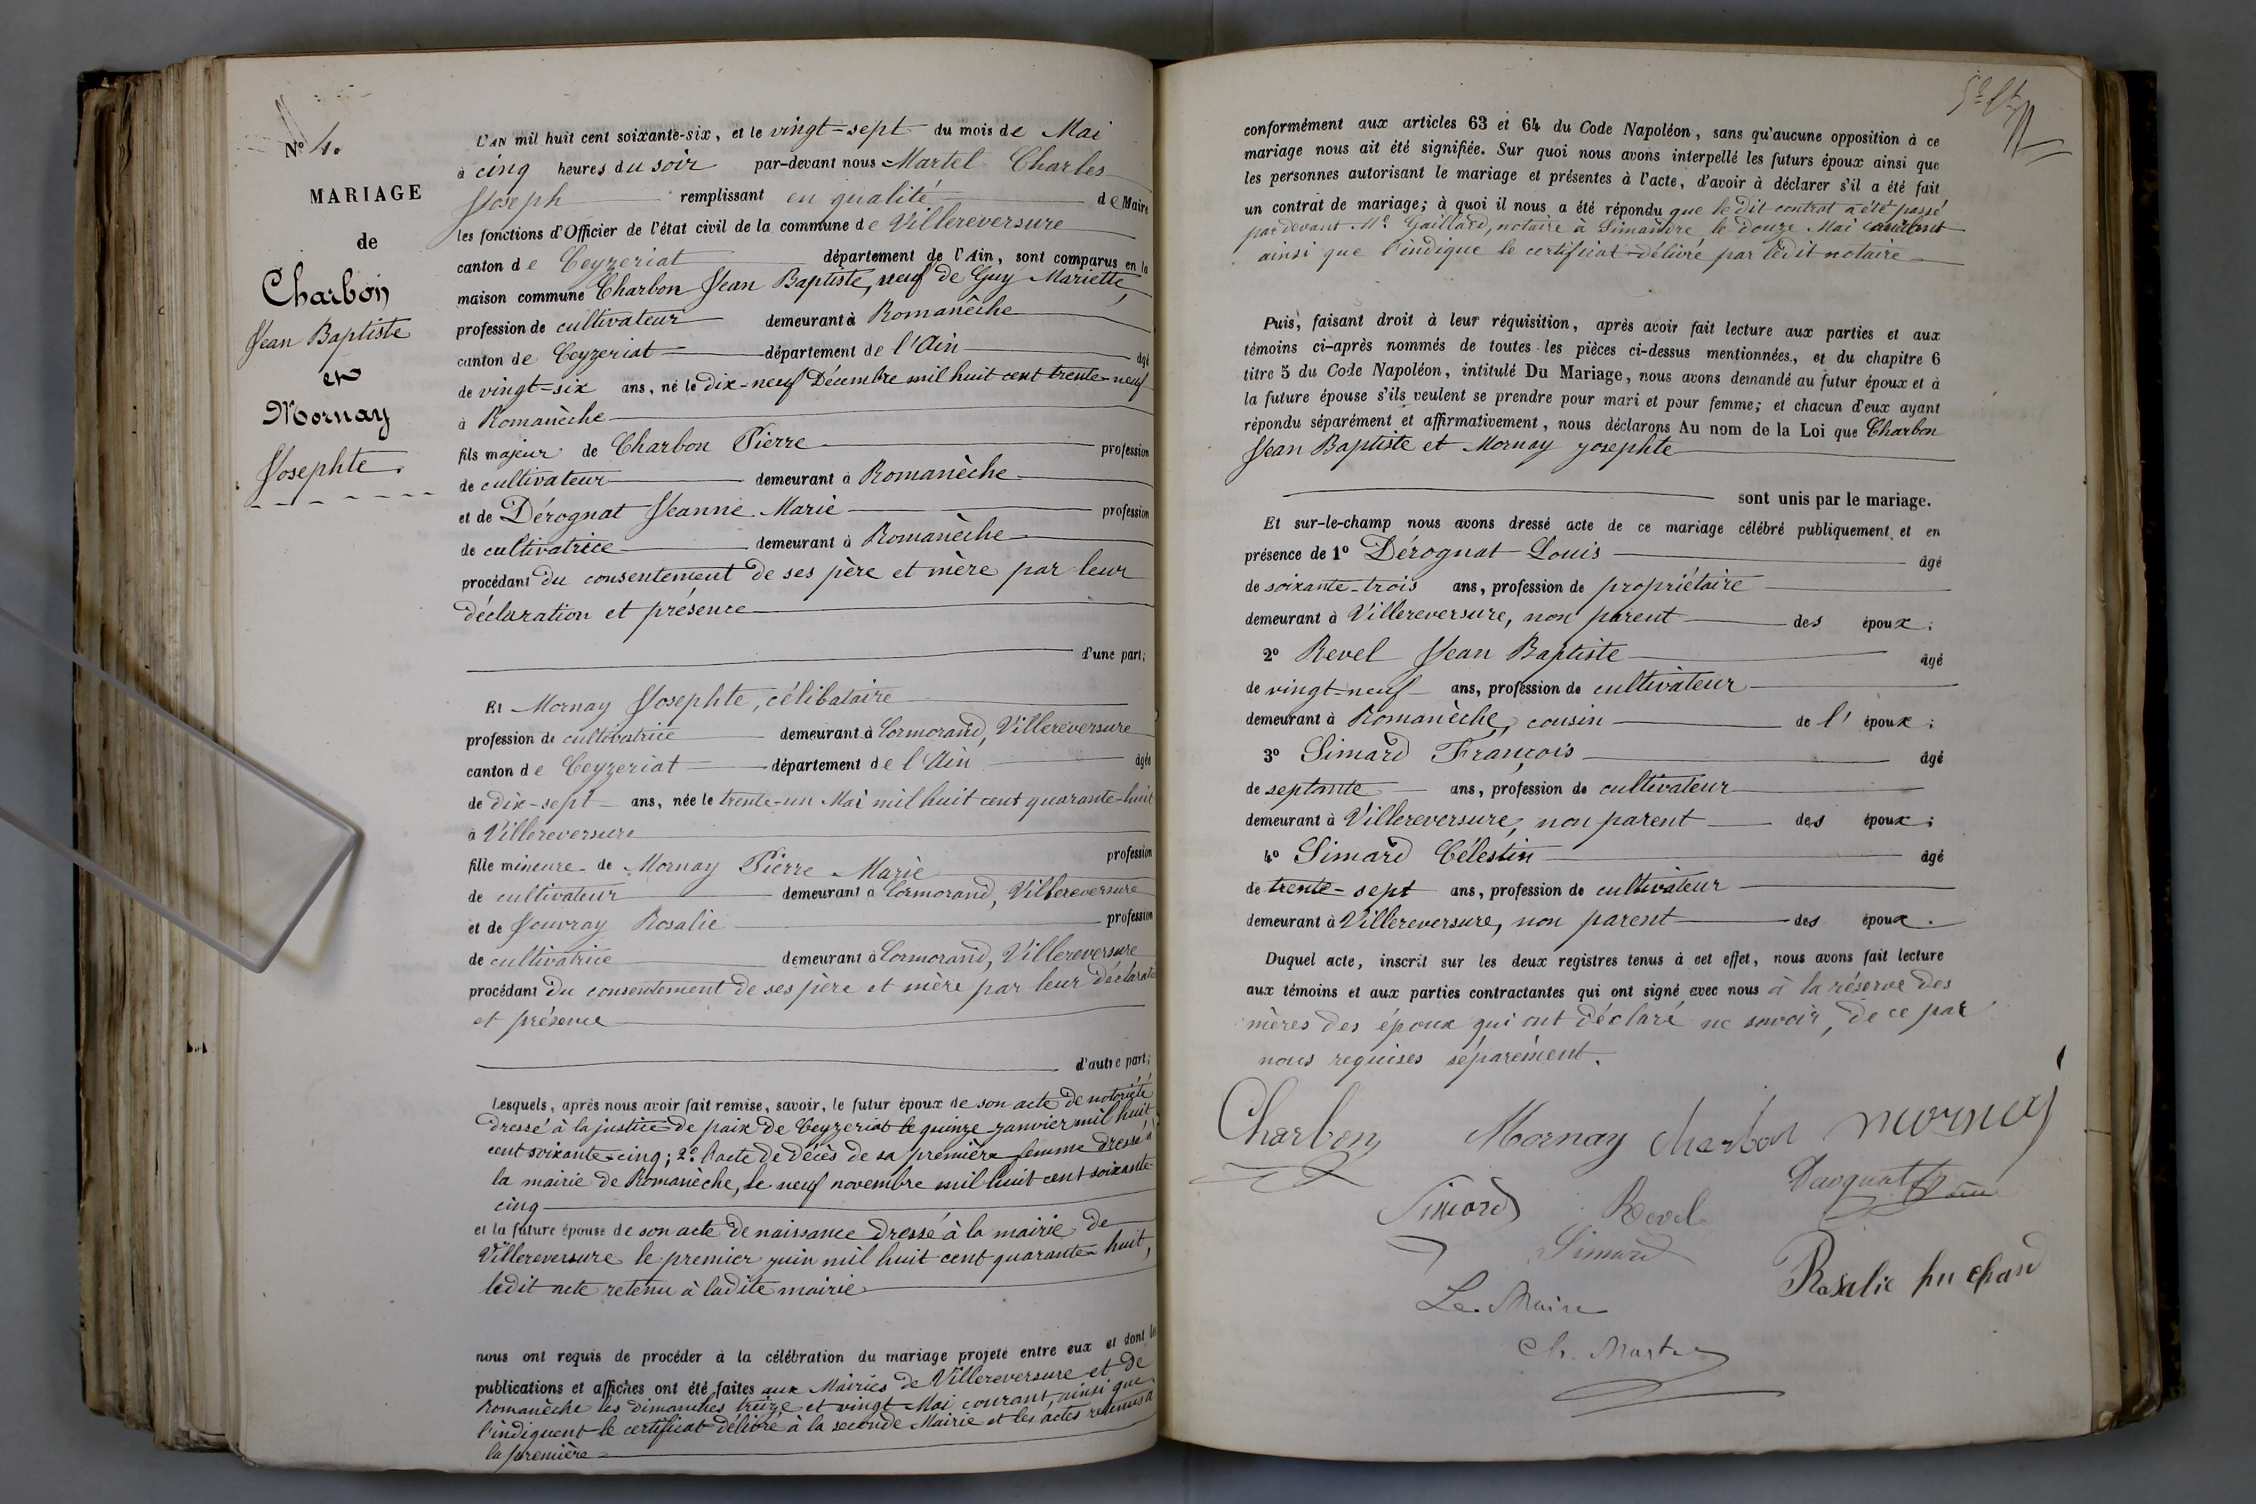 N° 4.
MARIAGE
de
Charbon
Jean Baptiste
et
Mornay
Josephte.
L'AN mil huit cent soixante-six, et le vingt-sept du mois de Mai
à cinq heures du soir par-devant nous Martel Charles
Joseph remplissant en qualité de Maire
les fonctions d'Officier de l'état civil de la commune de Villereversure
canton de Ceyzeriat département de l'Ain, sont comparus en la
maison commune Charbon Jean Baptiste, veuf de Guy Mariette,
profession de cultivateur demeurant à Romanèche
canton de Ceyzeriat département de l'Ain âgé
de vingt-six ans, né le dix-neuf Décembre mil huit cent trente-neuf
à Romanèche
fils majeur de Charbon Pierre profession
de cultivateur demeurant à Romanèche
et de Dérognat Jeanne Marie profession
de cultivatrice demeurant à Romanèche
procédant du consentement de ses père et mère par leur
déclaration et présence
d'une part;
Et Mornay Josephte, célibataire
profession de cultivatrice demeurant à Cormorand, Villereversure
canton de Ceyzeriat département de l'Ain âgée
de dix-sept ans, née le trente-un Mai mil huit cent quarante-huit
à Villereversure
fille mineure de Mornay Pierre Marie profession
de cultivateur demeurant à Cormorand, Villereversure
et de Jouvray Rosalie profession
de cultivatrice demeurant à Cormorand, Villereversure
procédant du consentement de ses père et mère par leur déclarat
et présence
d'autre part;
Lesquels, après nous avoir fait remise, savoir, le futur époux de son acte de notoriété
dressé à la justice de paix de Ceyzeriat le quinze janvier mil huit
cent soixante-cinq; 2° l'acte de décès de sa première femme dressé à
la mairie de Romanèche, le neuf novembre mil huit cent soixante-
cinq
et la future épouse de son acte de naissance dressé à la mairie de
Villereversure le premier juin mil huit cent quarante-huit,
ledit acte retenu à ladite mairie
nous ont requis de procéder à la célébration du mariage projeté entre eux et dont les
publications et affiches ont été faites aux Mairies de Villereversure et de
Romanèche les dimanches treize et vingt Mai courant, ainsi que
l'indiquent le certificat délivré à la seconde Mairie et les actes retenus à
la première
conformément aux articles 63 et 64 du Code Napoléon, sans qu'aucune opposition à ce
mariage nous ait été signifiée. Sur quoi nous avons interpellé les futurs époux ainsi que
les personnes autorisant le mariage et présentes à l'acte, d'avoir à déclarer s'il a été fait
un contrat de mariage; à quoi il nous a été répondu que le dit contrat a été passé
par devant Me Gaillard, notaire à Simandre le douze Mai courant
ainsi que l'indique le certificat délivré par ledit notaire
Puis, faisant droit à leur réquisition, après avoir fait lecture aux parties et aux
témoins ci-après nommés de toutes les pièces ci-dessus mentionnées, et du chapitre 6
titre 5 du Code Napoléon, intitulé Du Mariage, nous avons demandé au futur époux et à
la future épouse s'ils veulent se prendre pour mari et pour femme; et chacun d'eux ayant
répondu séparément et affirmativement, nous déclarons Au nom de la Loi que Charbon
Jean Baptiste et Mornay josephte
sont unis par le mariage.
Et sur-le-champ nous avons dressé acte de ce mariage célébré publiquement et en
présence de 1° Dérognat Louis âgé
de soixante-trois ans, profession de propriétaire
demeurant à Villereversure, non parent des époux;
2° Revel Jean Baptiste âgé
de vingt-neuf ans, profession de cultivateur
demeurant à Romanèche, cousin de l'époux;
3° Simard François âgé
de septante ans, profession de cultivateur
demeurant à Villereversure, non parent des époux;
4° Simard Célestin âgé
de trente-sept ans, profession de cultivateur
demeurant à Villereversure, non parent des époux.
Duquel acte, inscrit sur les deux registres tenus à cet effet, nous avons fait lecture
aux témoins et aux parties contractantes qui ont signé avec nous à la réserve des
mères des époux qui ont déclaré ne savoir, de ce par
nous requises séparément.
Charbon Mornay charbon mornay
Simard Revel
Simard
Rosalie
Le Maire
Ch. Martel